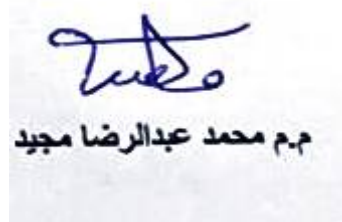 م.م محمد عبدالرضا مجيد